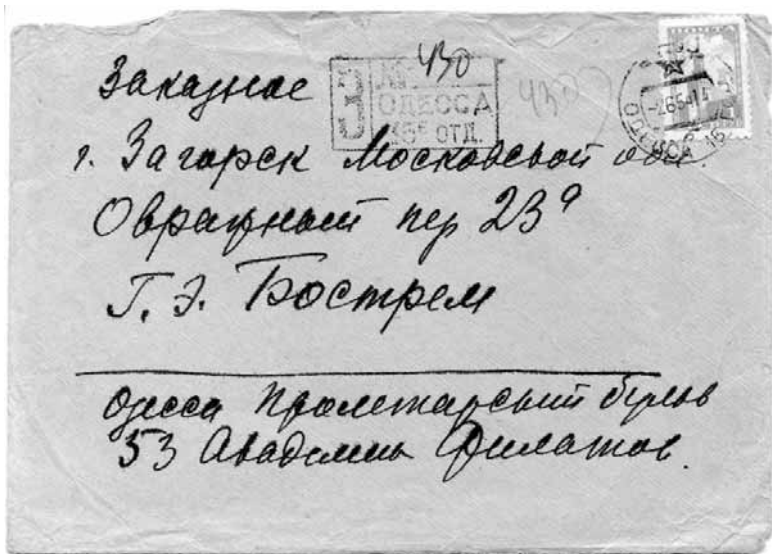 Заказное
З № 430
ОДЕССА
15е ОТД.
430
г. Загорск Московской обл.
Овражный пер 23а
Г. Э. Бострем
Одесса Пролетарский бульв
53 Академик Филатов.